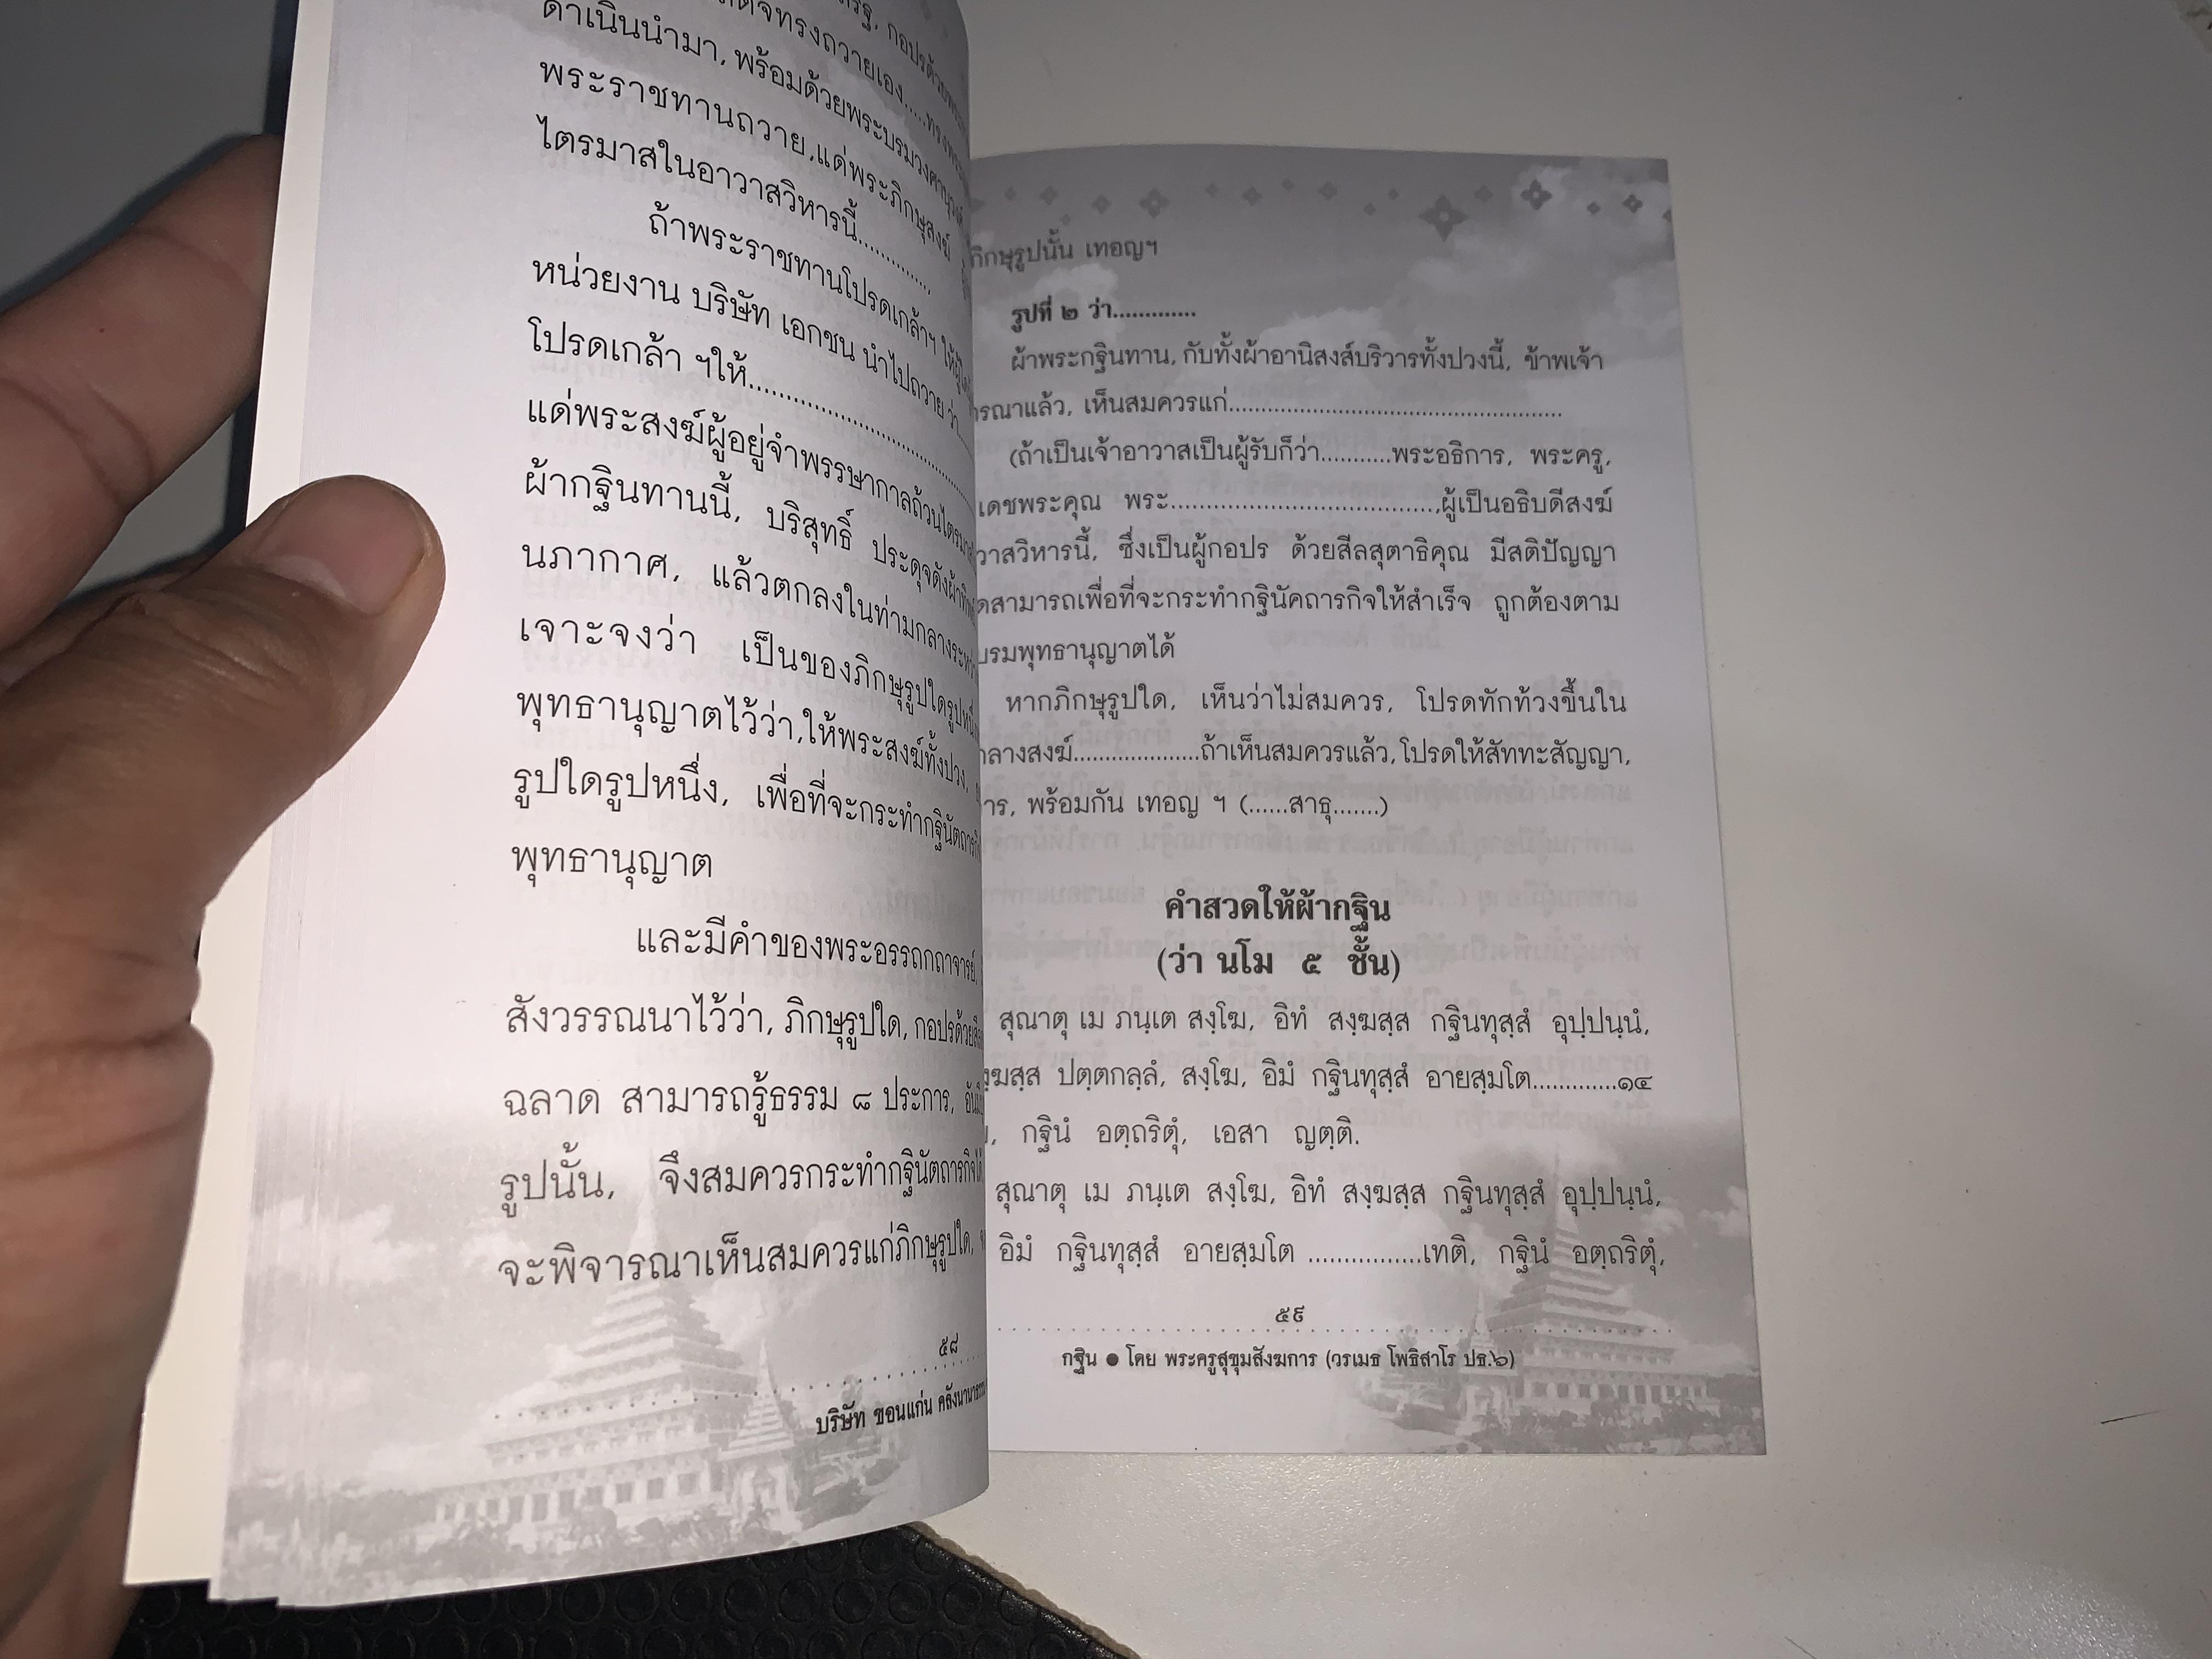 กอปรด้วย
ทรงถวายเอง
ดำเนินนำมา, พร้อมด้วยพระบรมวงศานุวงศ์
พระราชทานถวาย,แด่พระภิกษุสงฆ์
ไตรมาสในอาวาสวิหารนี้
ถ้าพระราชทานโปรดเกล้าฯ ให้
หน่วยงาน บริษัท เอกชน นำไปถวาย ว่า
โปรดเกล้า ฯให้
แด่พระสงฆ์ผู้อยู่จำพรรษากาลถ้วนไตรมาส
ผ้ากฐินทานนี้, บริสุทธิ์ ประดุจดังผ้าทิพย์
นภากาศ, แล้วตกลงในท่ามกลาง
เจาะจงว่า เป็นของภิกษุรูปใดรูปหนึ่ง
พุทธานุญาตไว้ว่า,ให้พระสงฆ์ทั้งปวง,
รูปใดรูปหนึ่ง, เพื่อที่จะกระทำกฐินัตถารกิจ
พุทธานุญาต
และมีคำของพระอรรถกถาจารย์,
สังวรรณนาไว้ว่า, ภิกษุรูปใด, กอปรด้วย
ฉลาด สามารถรู้ธรรม ๘ ประการ,
รูปนั้น, จึงสมควรกระทำกฐินัตถารกิจได้
จะพิจารณาเห็นสมควรแก่ภิกษุรูปใด,
๕๘
บริษัท ขอนแก่น คลังนานาธรรม
ภิกษุรูปนั้น เทอญฯ
รูปที่ ๒ ว่า.............
ผ้าพระกฐินทาน, กับทั้งผ้าอานิสงส์บริวารทั้งปวงนี้, ข้าพเจ้า
รณาแล้ว, เห็นสมควรแก่....................................................
(ถ้าเป็นเจ้าอาวาสเป็นผู้รับก็ว่า...........พระอธิการ, พระครู,
เดชพระคุณ พระ.......................................,ผู้เป็นอธิบดีสงฆ์
วาสวิหารนี้, ซึ่งเป็นผู้กอปร ด้วยสีลสุตาธิคุณ มีสติปัญญา
ดสามารถเพื่อที่จะกระทำกฐินัคถารกิจให้สำเร็จ ถูกต้องตาม
บรมพุทธานุญาตได้
หากภิกษุรูปใด, เห็นว่าไม่สมควร, โปรดทักท้วงขึ้นใน
กลางสงฆ์....................ถ้าเห็นสมควรแล้ว,โปรดให้สัททะสัญญา,
การ, พร้อมกัน เทอญ ฯ (......สาธุ.......)
คำสวดให้ผ้ากฐิน
(ว่า นโม ๕ ชั้น)
สุณาตุ เม ภนฺเต สงฺโฆ, อิทํ สงฺฆสฺส กฐินทุสฺสํ อุปฺปนฺนํ,
งฺฆสฺส ปตฺตกลฺลํ, สงฺโฆ, อิมํ กฐินทุสฺสํ อายสฺมโต.............๑๔
, กฐินํ อตฺถริตุํ, เอสา ญตฺติ.
สุณาตุ เม ภนฺเต สงฺโฆ, อิทํ สงฺฆสฺส กฐินทุสฺสํ อุปฺปนฺนํ,
อิมํ กฐินทุสฺสํ อายสฺมโต .................เทติ, กฐินํ อตฺถริตุํ,
๕๙
กฐิน ● โดย พระครูสุขุมสังฆการ (วรเมธ โพธิสาโร ปธ.๖)